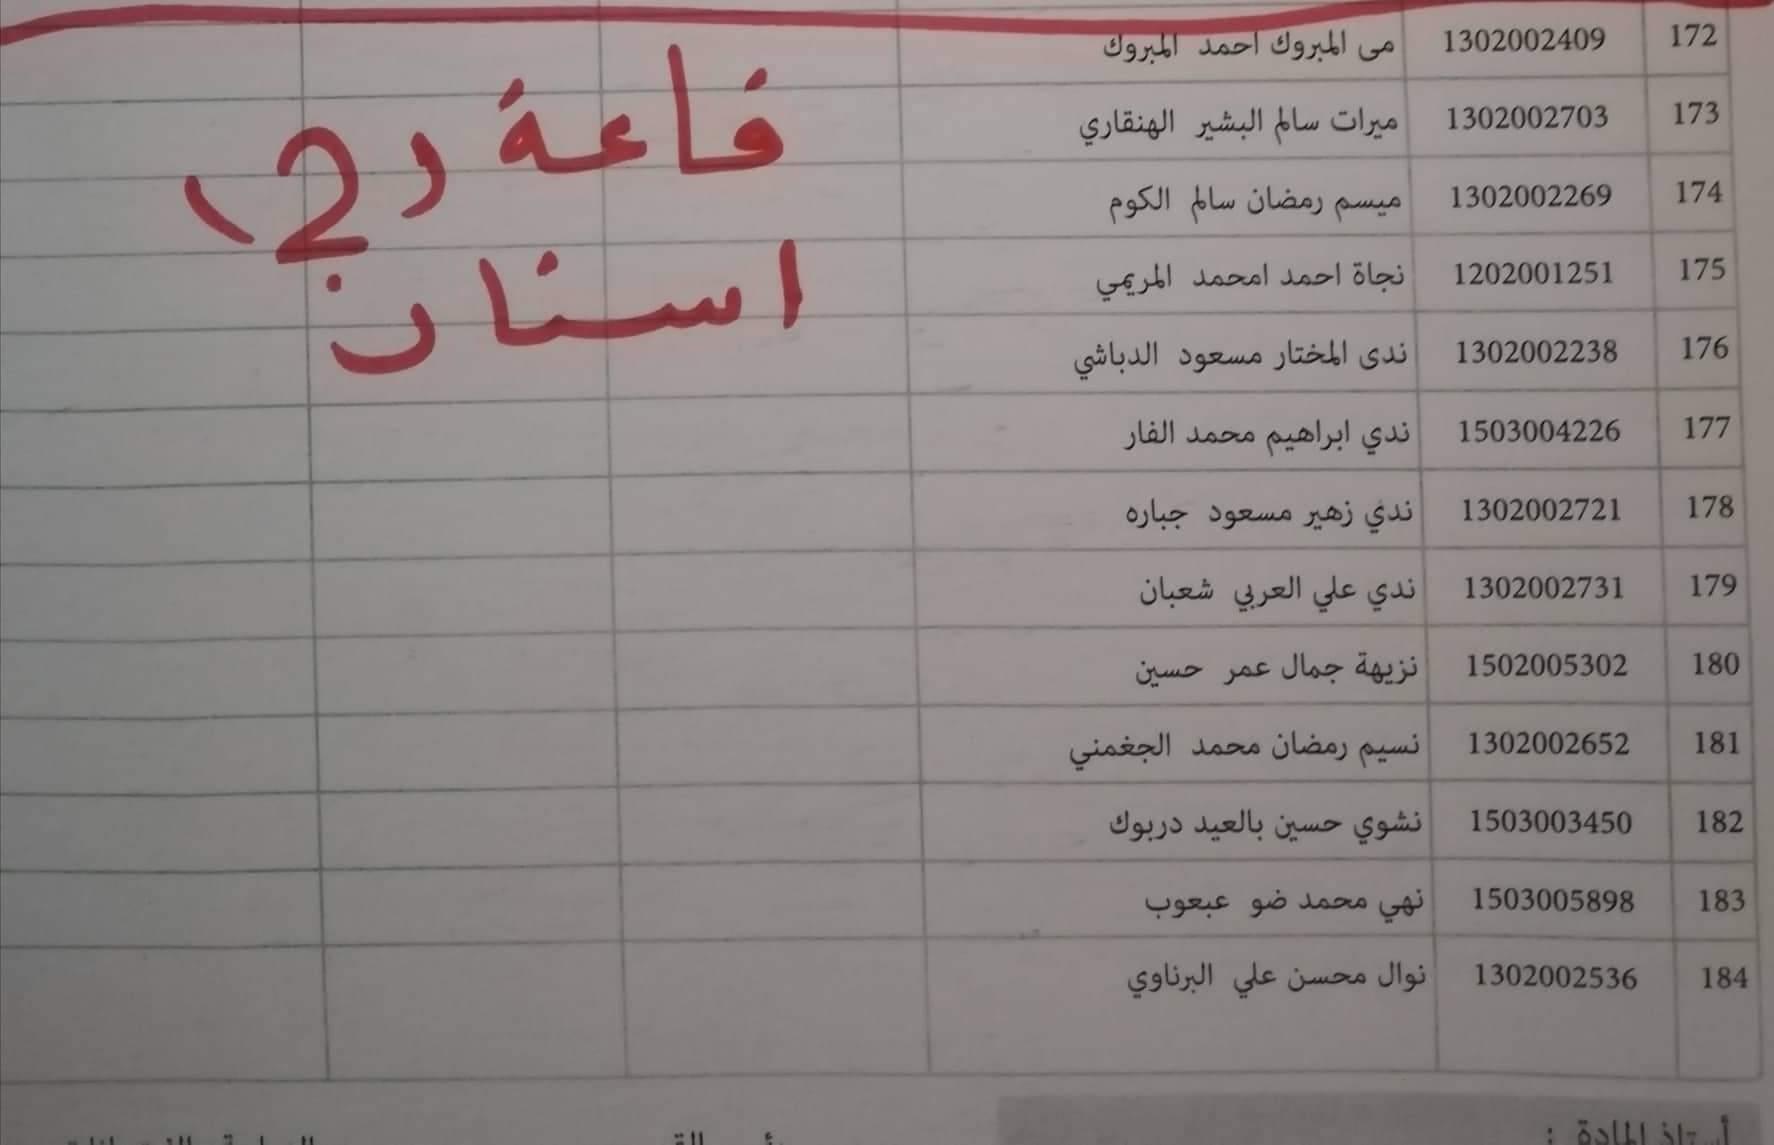 172 1302002409 مى المبروك احمد المبروك
173 1302002703 ميرات سالم البشير الهنقاري
174 1302002269 ميسم رمضان سالم الكوم
175 1202001251 نجاة احمد امحمد المريمي
176 1302002238 ندى المختار مسعود الدباشي
177 1503004226 ندي ابراهيم محمد الفار
178 1302002721 ندي زهير مسعود جباره
179 1302002731 ندي علي العربي شعبان
180 1502005302 نزيهة جمال عمر حسين
181 1302002652 نسيم رمضان محمد الجغمني
182 1503003450 نشوي حسين بالعيد دربوك
183 1503005898 نهي محمد ضو عبعوب
184 1302002536 نوال محسن علي البرناوي
قاعة (2)
اسنان
أستاذ المادة :